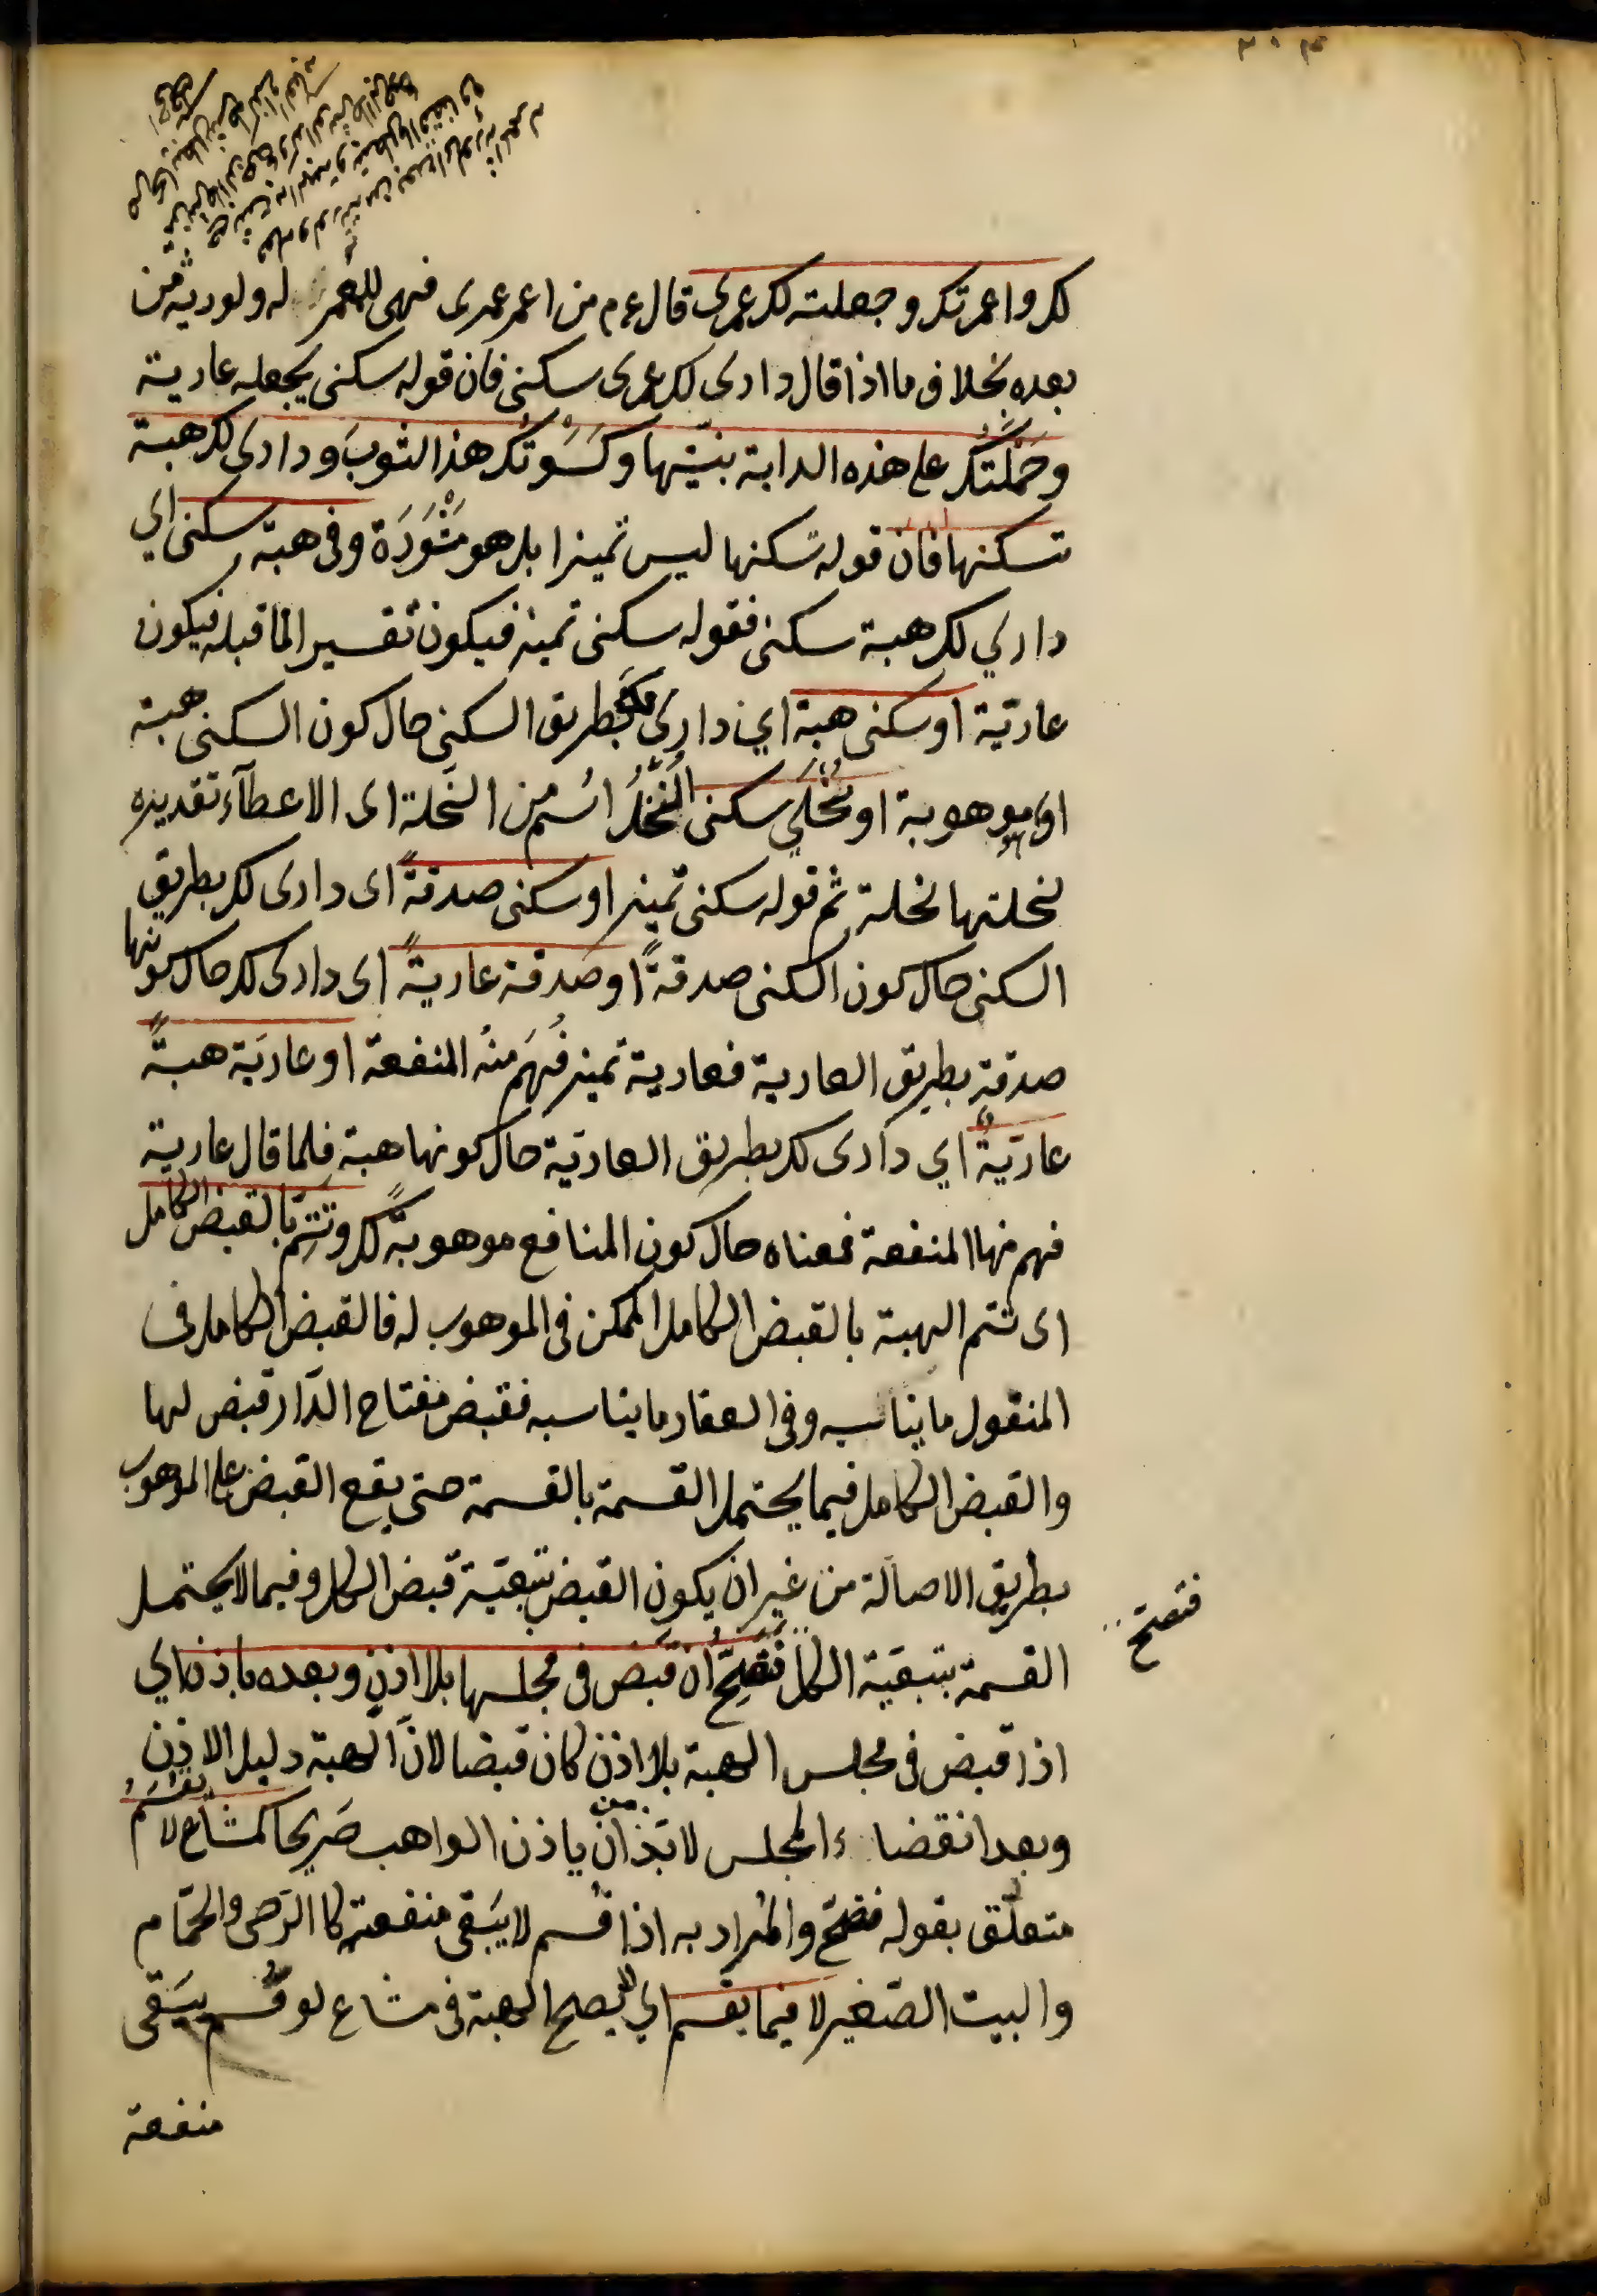 لك واعمرتك وجعلته لك عمرى قال ءم من اعمر عمرى فهى للمعمر له ولورثته من
بعده بخلاف ما اذا قال دارى لك عمرى سكنى فان قوله سكنى يجعله عارية
وحَمَلْتُك على هذه الدابة بنيتها وكَسَوْتُك هذا الثوبَ ودارى لك هبة
تسكنها فان قوله تسكنها ليس تميزا بل هو مَشْوَرَة وفى هبة سكنى اي
داري لك هبة سكنى فقوله سكنى تميز فيكون تفسيرا لما قبله فيكون
عاريّة او سكنى هبة اي داري لك بطريق السكنى حال كون السكنى هبة
اى موهوبة او نُحْلَى سكنى النُّحْلُ اسُم من النَحلة اى الاعطآء تقديره
نحلتها نحلة ثم قوله سكنى تميز او سكنى صدقةً اى دارى لك بطريق
السكنى حال كون السكنى صدقةً او صدقة عاريةً اى دارى لك حال كونها
صدقة بطريق العارية فعارية تميز فُهَم منهُ المنفعة او عاريَة هبةً
عاريّةً اي دارى لك بطريق العاريّة حال كونها هبة فلما قال عارية
فهم منها المنفعة فمعناه حال كون المنافع موهوبةً لك وتَتِمّ بالقبض الكامل
اى تتم الهبة بالقبض الكامل الممكن فى الموهوب له فالقبض الكامل فى
المنقول ما يناسبه وفى العقار ما يناسبه فقبض مفتاح الدّار قبض لها
والقبض الكامل فيما يحتمل القسمة بالقسمة حتى يقع القبض على الموهوب
بطريق الاصالة من غير ان يكون القبض بتبعيّة قبض الكل وفيما لا يحتمل
القسمة بتبعيّة الكل فَتَصِحُّ ان قَبَضَ فى مجلسها بلا اذنٍ وبعده باذن اي
فتصح
اذا قبض فى مجلس الهبة بلا اذن كان قبضا لانّ الهبة دليل الاذن
وبعد انقضاء المجلس لا بدّ من ان ياذن الواهب صَريحا كمشاع لا يُقْسَمُ
متعلّق بقوله فتصحّ والمُراد به اذا قُسم لا يَبَقى منفعته كا الرّحى والحَمّام
والبيت الصّغير لا فيما يقسم اي لا يصح الهبة فى مشاع لو قُسم يَبَقى
منفعة